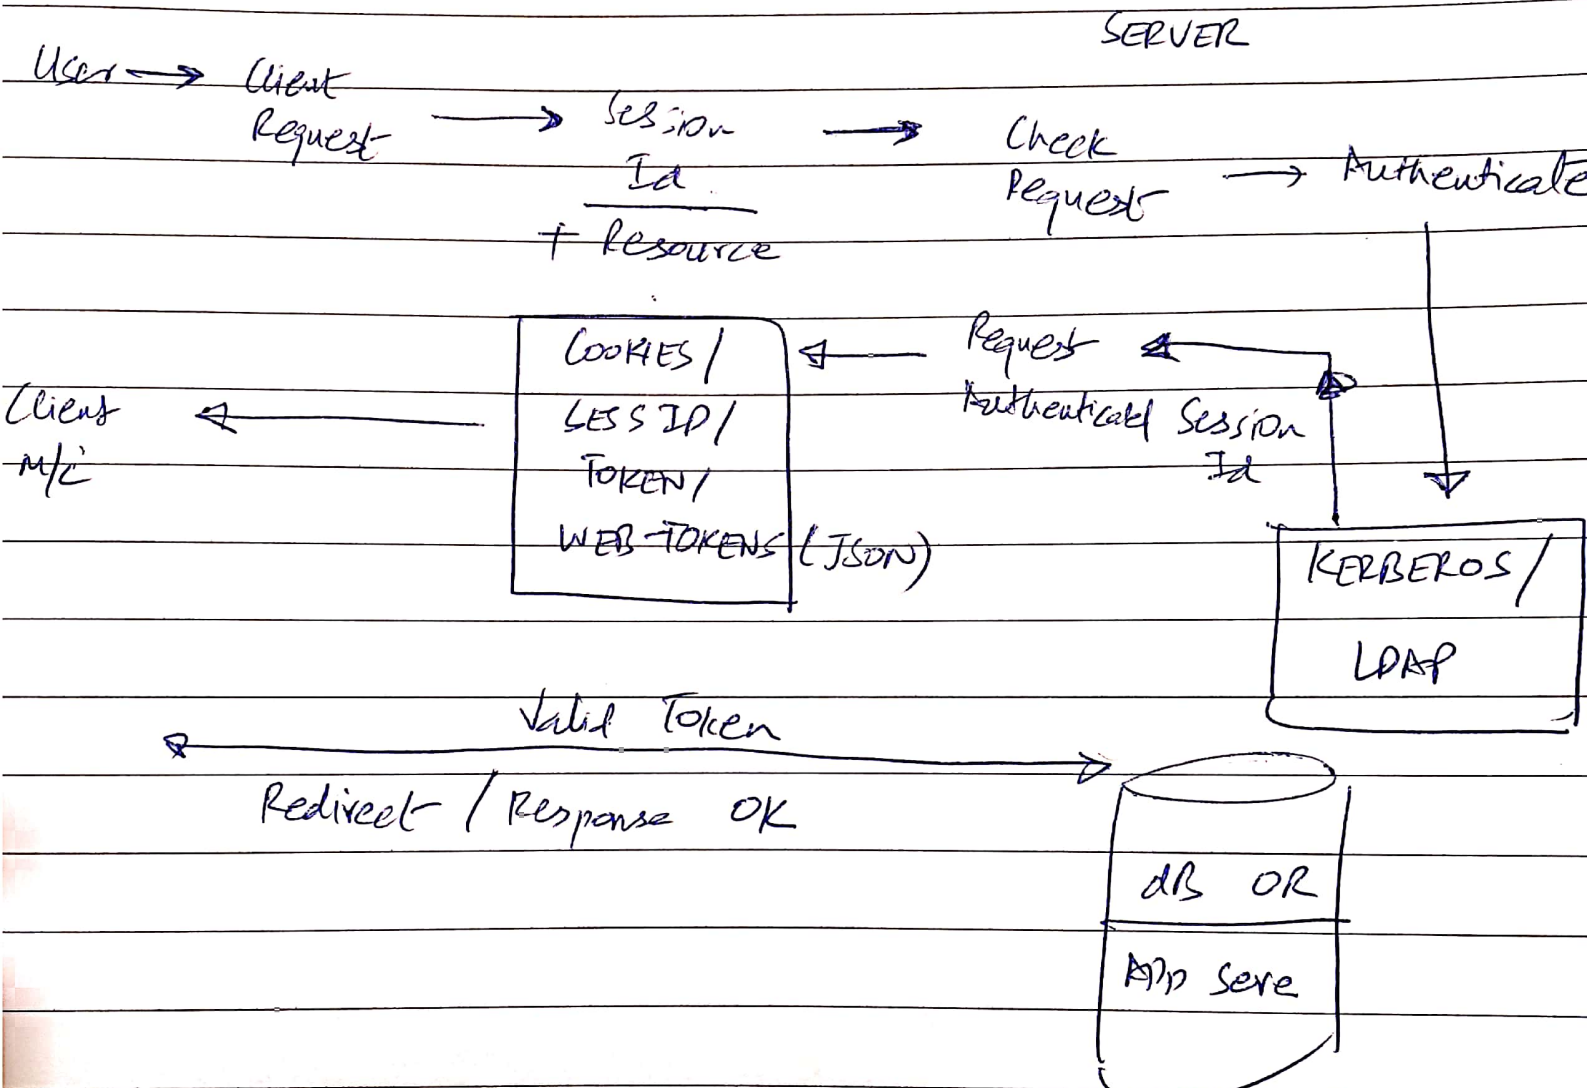 SERVER
User
Client
Request
Session
Id
+ Resource
Check
Request
Authenticate
COOKIES /
SESS ID /
TOKEN /
WEB-TOKENS (JSON)
Request
Authenticated Session
Id
Client
M/C
KERBEROS /
LDAP
Valid Token
Redirect / Response OK
dB OR
App Serve